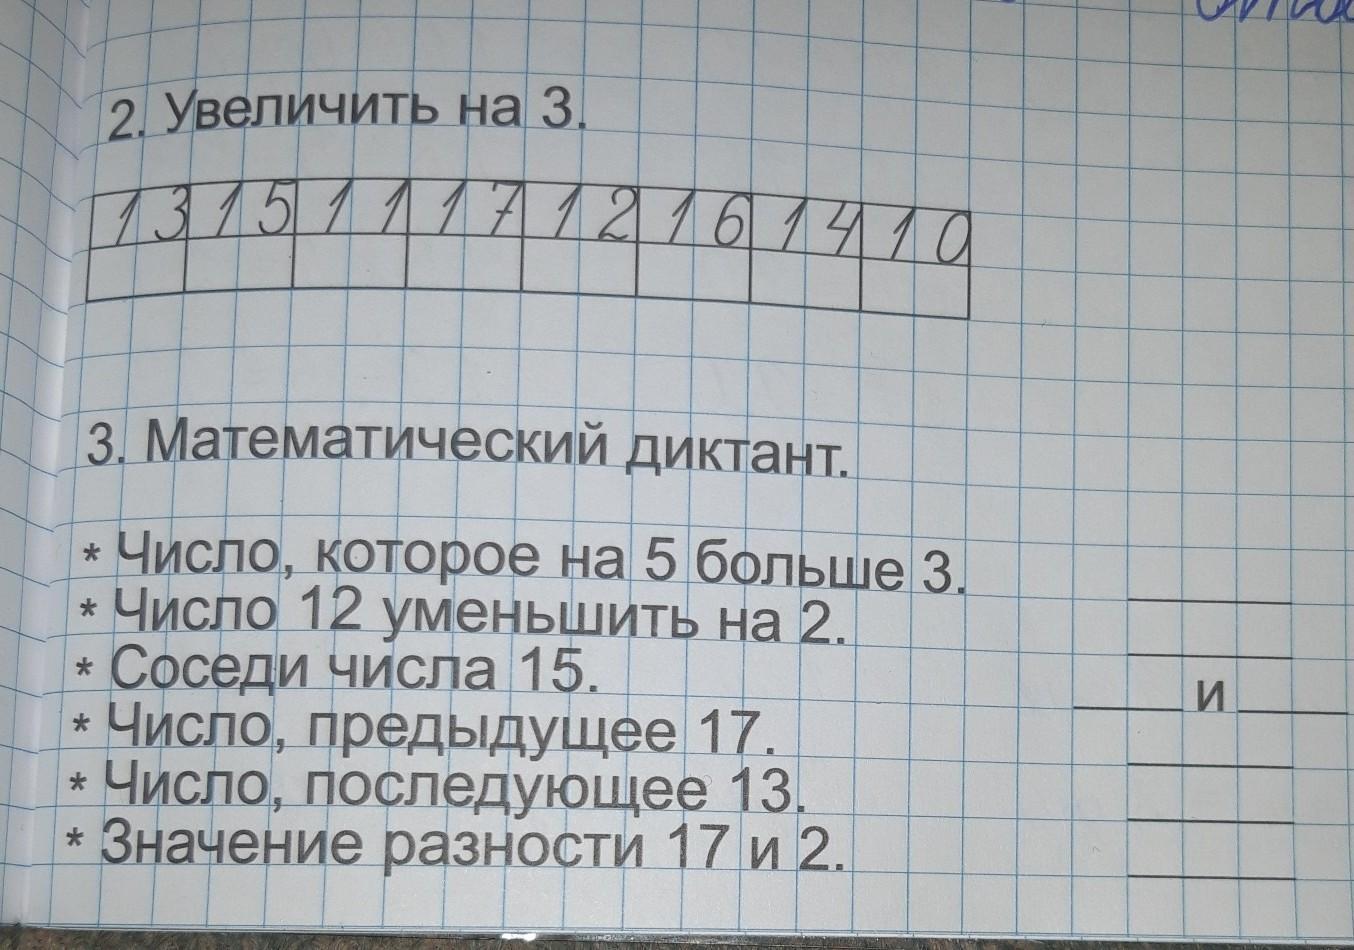 2. Увеличить на 3.
13 15 11 17 12 16 14 10
3. Математический диктант.
* Число, которое на 5 больше 3.
* Число 12 уменьшить на 2.
* Соседи числа 15. и
* Число, предыдущее 17.
* Число, последующее 13.
* Значение разности 17 и 2.